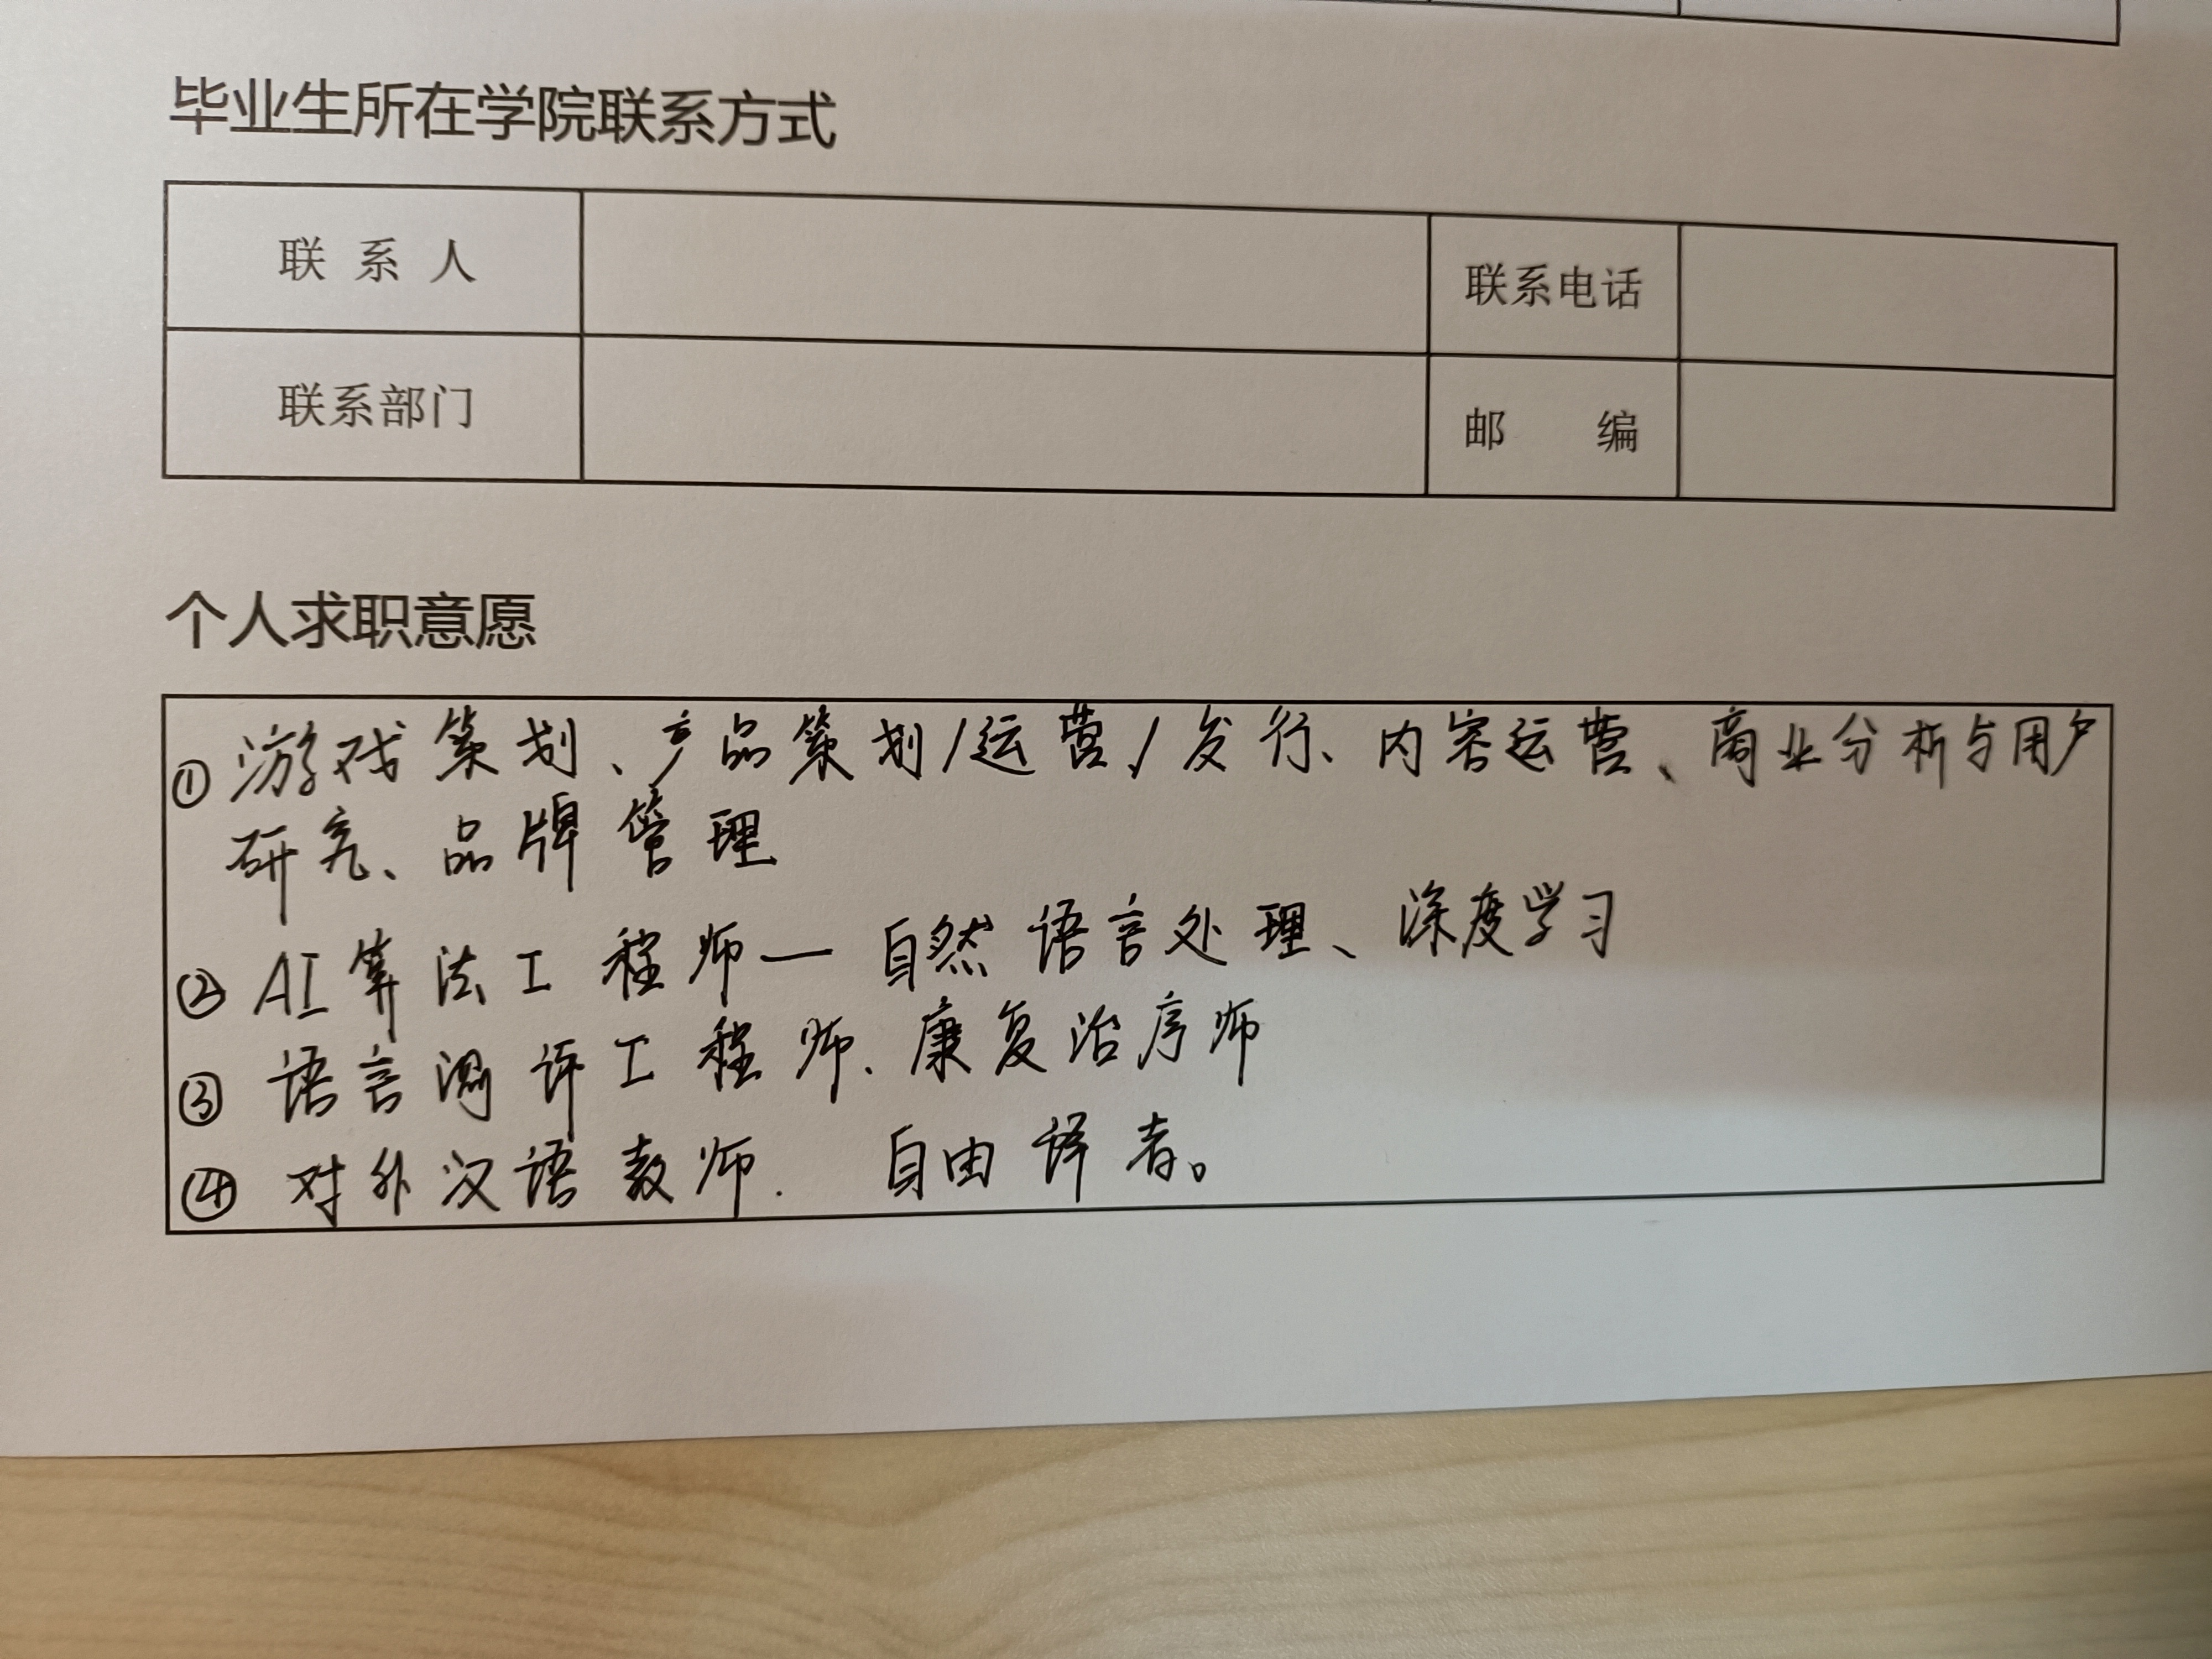 毕业生所在学院联系方式
联 系 人 联系电话
联系部门 邮 编
个人求职意愿
① 游戏策划、产品策划/运营/发行、内容运营、商业分析与用户
研究、品牌管理
② AI算法工程师—自然语言处理、深度学习
③ 语言测评工程师、康复治疗师
④ 对外汉语教师. 自由译者。